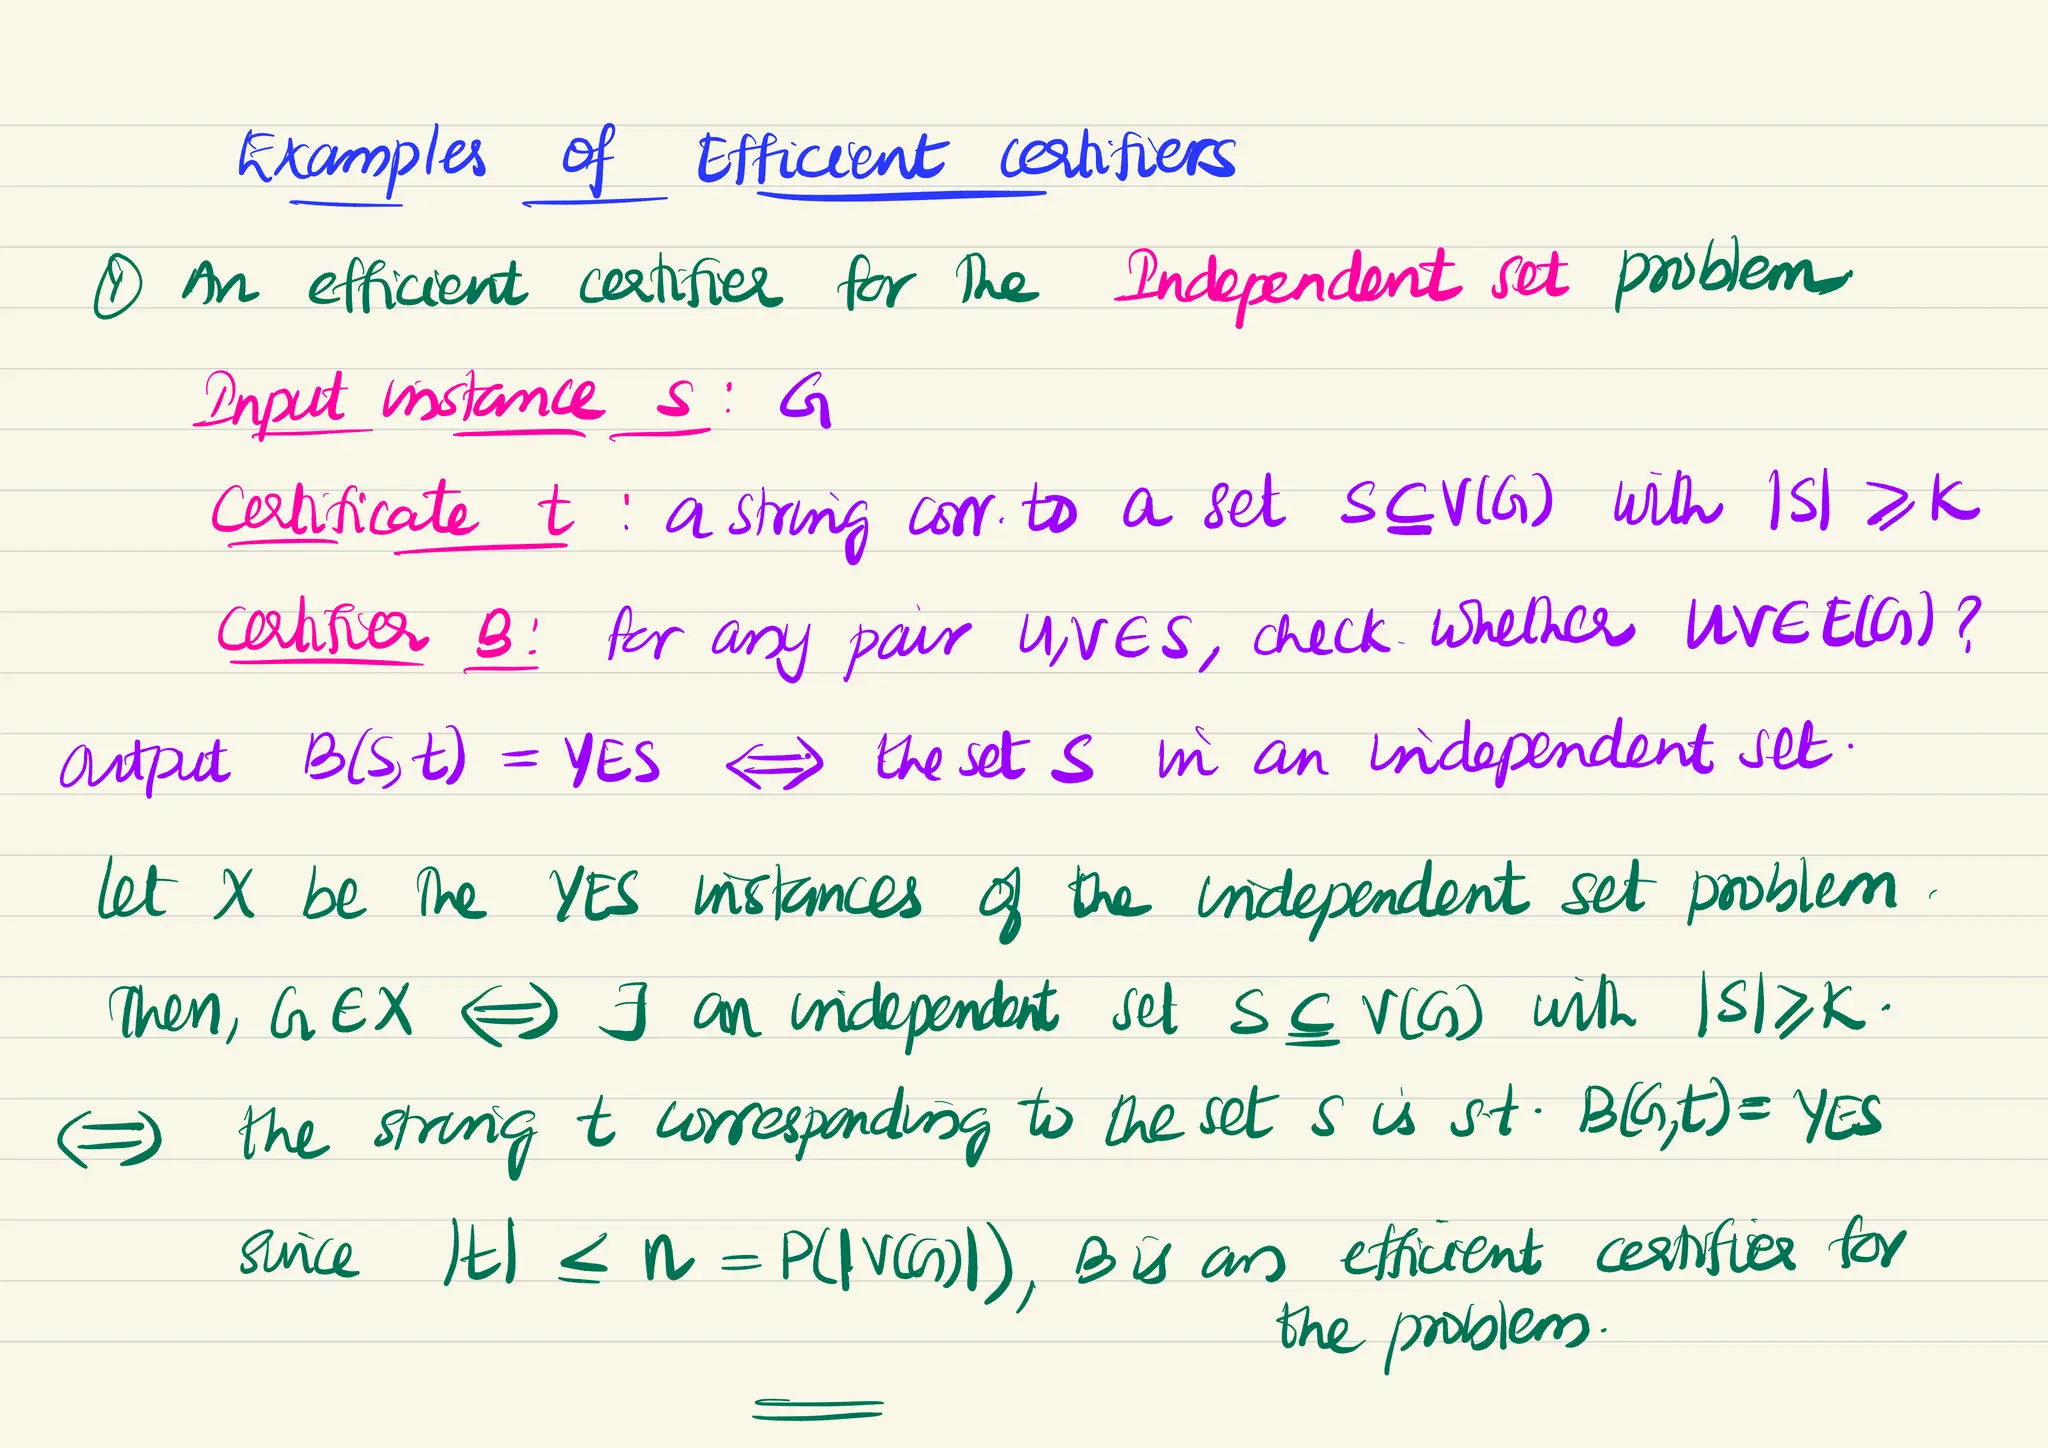 Examples of Efficient certifiers
① An efficient certifier for the Independent set problem
Input instance s : G
Certificate t : a string corr. to a set S⊆V(G) with |S| ≥ K
Certifier B: for any pair u,v∈S, check whether uv∈E(G)?
output B(s,t) = YES ⟺ the set S in an independent set.
Let X be the YES instances of the independent set problem.
Then, G∈X ⟺ ∃ an independent set S ⊆ V(G) with |S|≥K.
⟺ the string t corresponding to the set S is s.t. B(G,t)= YES
since |t| ≤ n = P(|V(G)|), B is an efficient certifier for
the problem.